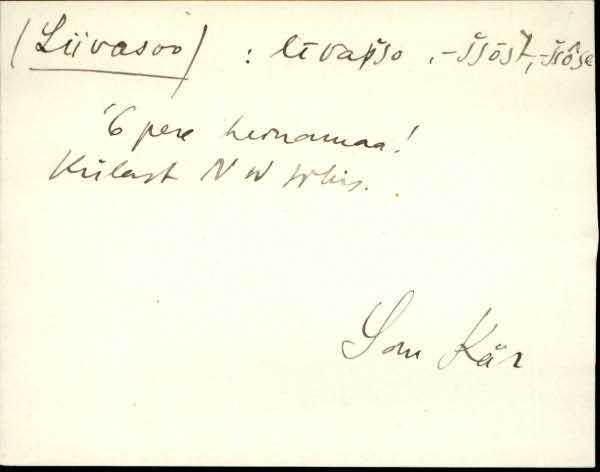 (Liivasoo) : līvaſso, -šsōst, -sōse
'6 pere heinamaa!
Külast NW
Som Kär